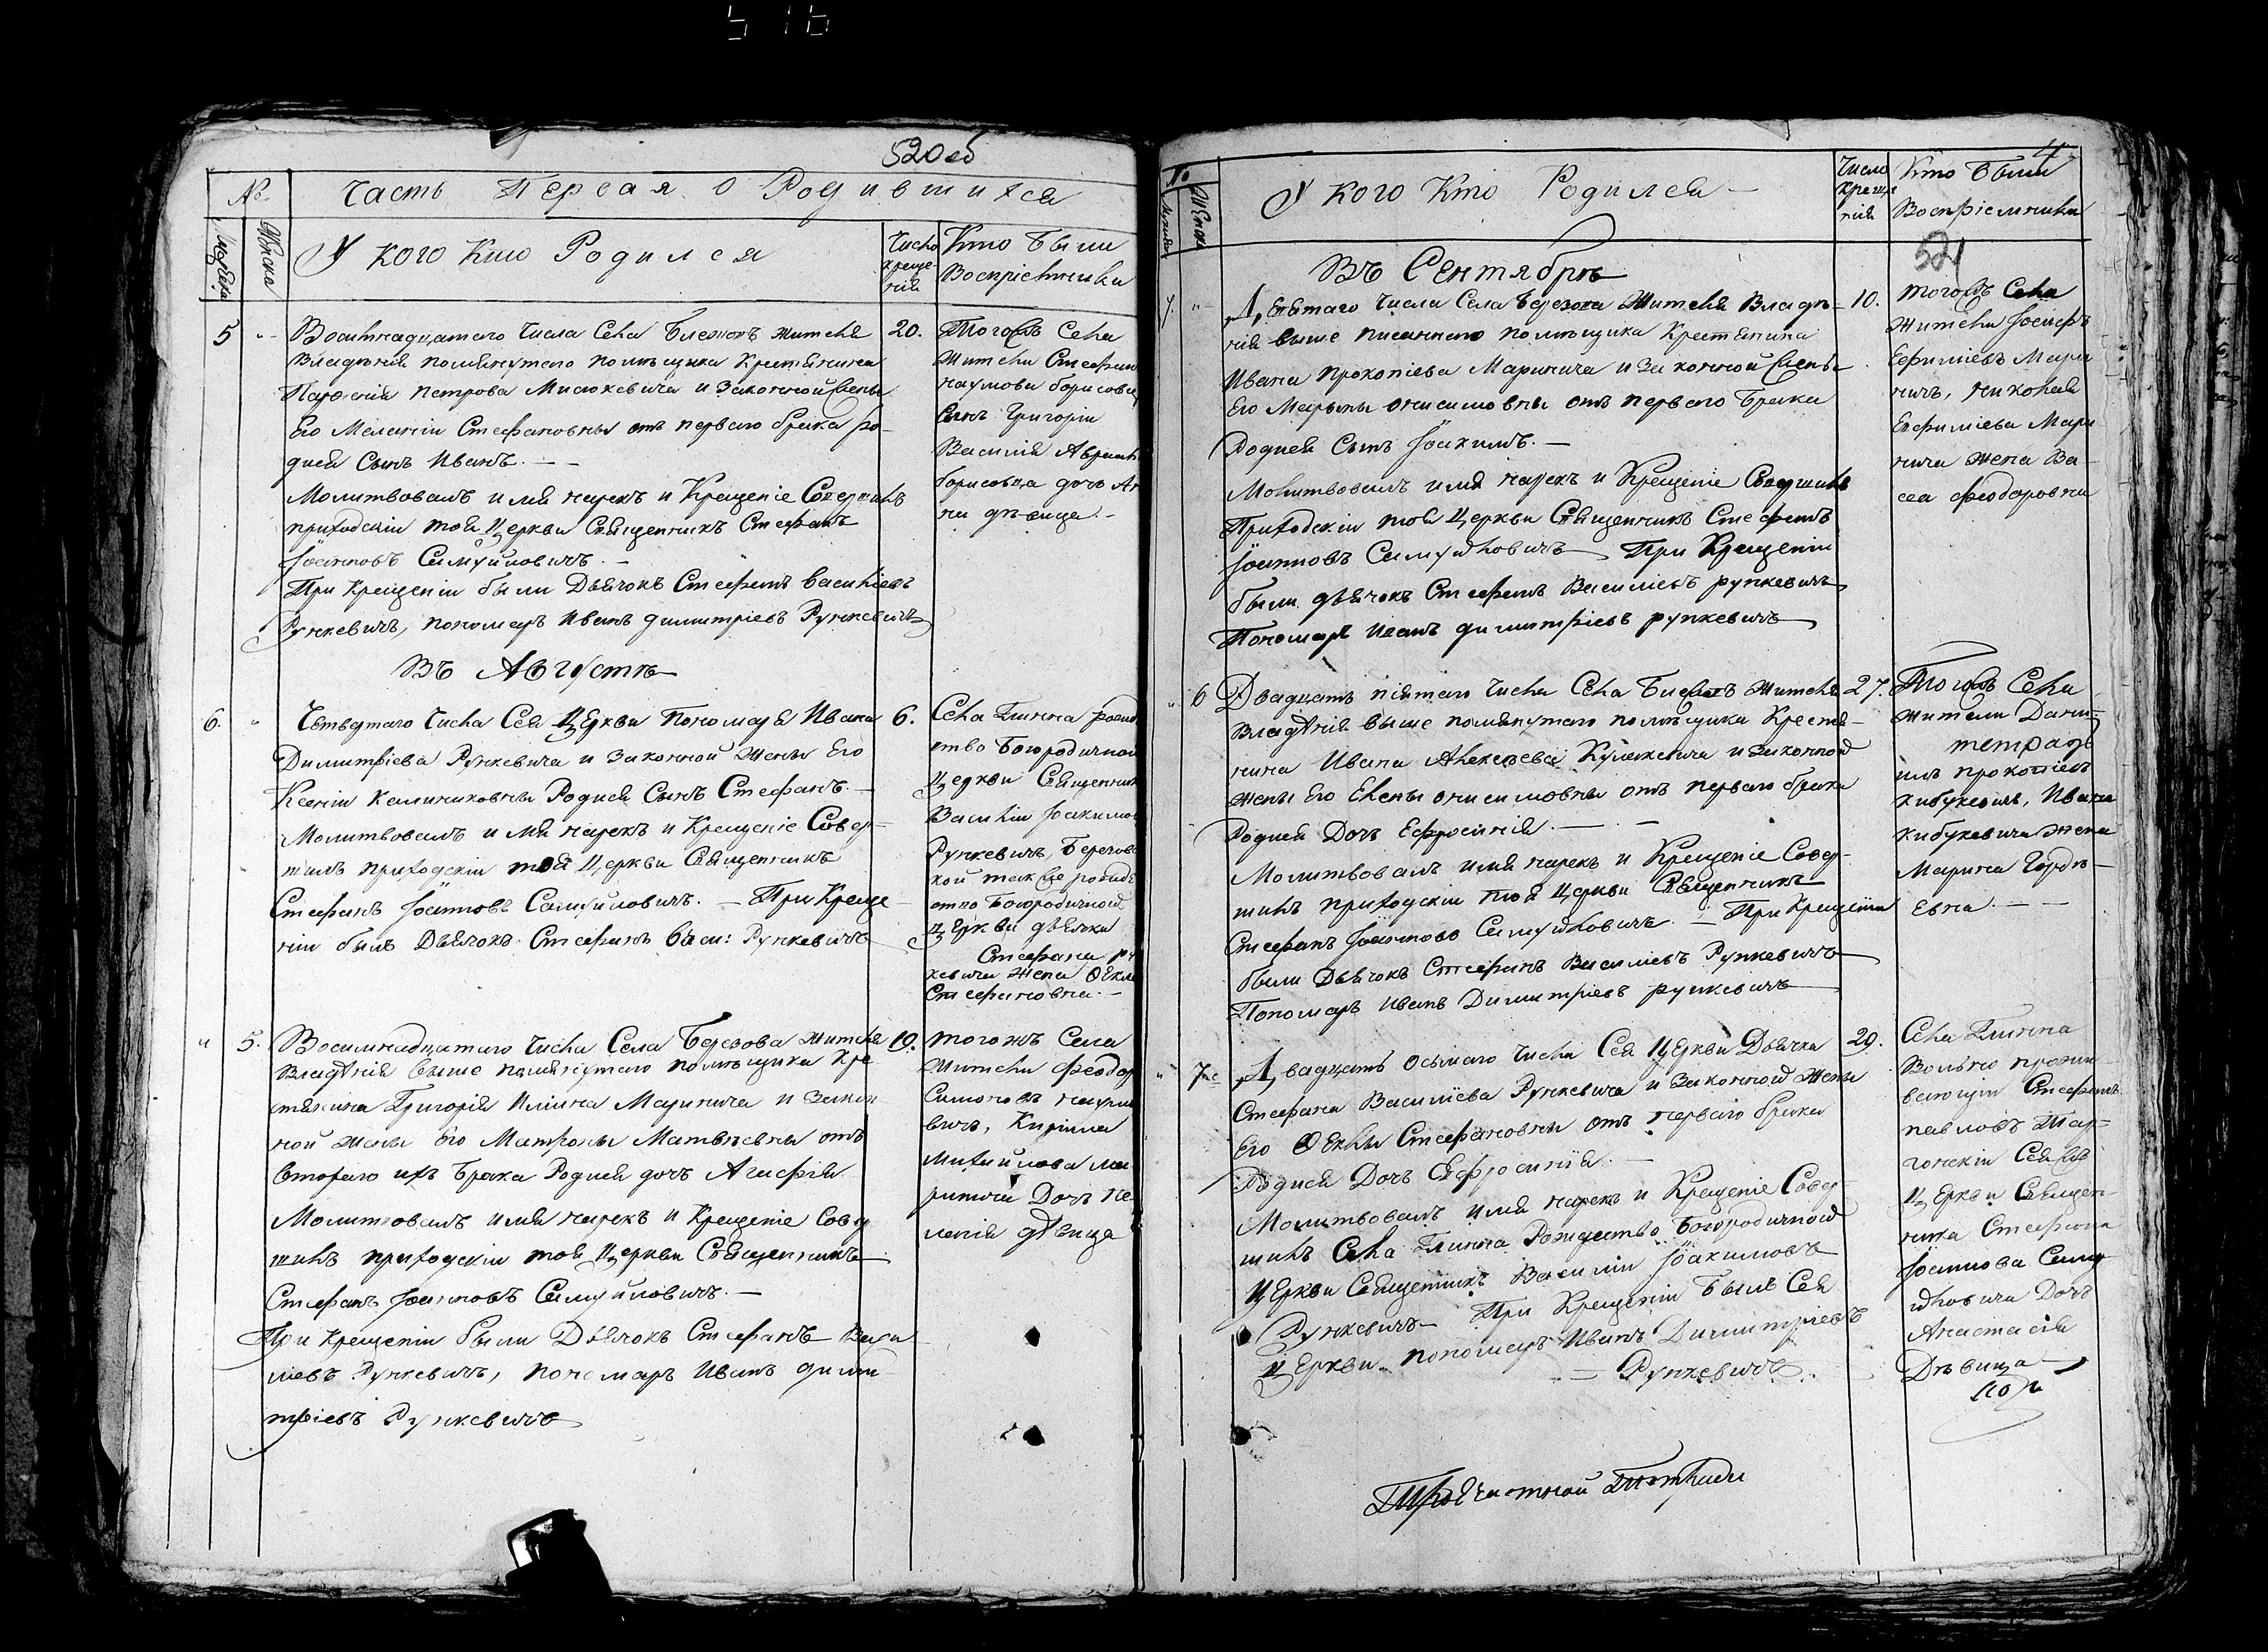 520 об
№
Часть Первая о Родившихся
Мужеска
Женска
У кого Кто Родился
Число
креще-
нія
Кто Были
Воспріемники
5
Восемнадцатаго Числа Села жителя
Владѣнія помянутаго помѣщика Крестянина
Петрова Мисюкевича и Законной жены
Его Меланіи Стефановны отъ перваго брака ро-
дися Сынъ Иванъ. - -
Молитвовалъ имя нарекъ и Крещеніе Совершилъ
приходскій той Церкви Священникъ Стефанъ
Іоанновъ Самуйловичъ. -
При Крещеніи были Дьячокъ Стефанъ Василіевъ
Рункевичъ, пономаръ Иванъ Димитріевъ Рункевичъ
20.
Тогожъ Села
Жители Стефанъ
наумовъ борисовец
Сынъ Григорій
Василія
борисовца дочъ
на дѣвица. -
Въ Августѣ
6.
Четвертаго Числа Сея Церкви Пономаря Ивана
Димитріева Рункевича и Законной Жены Его
Ксеніи Калиниковны Родися Сынъ Стефанъ. -
Молитвовалъ имя нарекъ и Крещеніе Совер-
шилъ приходскій той Церкви Священникъ
Стефанъ Іоанновъ Самуйловичъ. - При Креще-
ніи былъ Дьячокъ Стефанъ Васи: Рункевичъ
6.
Села Глинна рожде
ство Богородичной
Церкви Священник
Василій Іоакимов
Рункевичъ, Березов
кой так же рождѣ
ство Богородичной
Церкви дьячка
Стефана Ру
кевича жена Ѳекла
Стефановна. -
5.
Восемнадцатаго Числа Села Березова жителя
Владѣнія выше помянутаго помѣщика Кре
стянина Григорія Иліина Маринича и Закон
ной жены Его Матроны Матвѣевны отъ
втораго ихъ брака Родися дочъ Агафія.
Молитвовалъ имя нарекъ и Крещеніе Совер
шилъ приходскій той Церкви Священникъ
Стефанъ Іоанновъ Самуйловичъ. -
При Крещеніи были Дьячокъ Стефанъ Васи
ліевъ Рункевичъ, пономаръ Иванъ Дими
тріевъ Рункевичъ
19.
тогожъ Села
Жители Феодор
Симоновъ
вичъ, Кирилла
Михайлова Ма
ринича Дочъ Пе
лагія дѣвица
4
№
Женск
У кого Кто Родился -
Число
Креще
нія
Кто Были
Воспріемники
521
Въ Сентябрѣ
7.
Девятаго Числа Села Березова Жителя Владѣ-
нія выше писаннаго помѣщика Крестянина
Ивана Прокопіева Маринича и Законной жены
Его Марыны Онисимовны отъ перваго брака
Родися Сынъ Іоакимъ. -
Молитвовалъ имя нарекъ и Крещеніе Совершилъ
Приходскій той Церкви Священникъ Стефанъ
Іоанновъ Самуйловичъ При Крещеніи
были дьячокъ Стефанъ Василіевъ рункевичъ
Пономаръ Иванъ димитріевъ рункевичъ
10.
тогожъ Села
Жители Іосифъ
Ефиміевъ Мари
ничъ, Николая
Евфиміева Мари
нича жена Ва-
са феодоровна
6
Двадцать пятаго Числа Села жителя
Владѣнія выше помянутаго помѣщика Крестя-
нина Ивана Алексѣева Кулакевича и Законной
жены Его Елены онисимовны отъ перваго брака
Родися Дочъ Ефросинія. -
Молитвовалъ имя нарекъ и Крещеніе Совер-
шилъ приходскій той Церкви Священникъ
Стефанъ Іоанновъ Самуйловичъ. - При Крещеніи
были Дьячокъ Стефанъ Василіевъ Рункевичъ
Пономаръ Иванъ Димитріевъ рункевичъ
27.
Тогожъ Села
жители Дани-
тетрадь
илъ прокопіевъ
Кибукевичъ, Ивана
Кибукевича жена
Марина Гордѣ-
евна. - -
7
Двадцать Осьмаго Числа Сея Церкви Дьячка
Стефана Василіева Рункевича и Законной Жены
Его Ѳеклы Стефановны отъ перваго брака
Родися Дочъ Ефросинія. -
Молитвовалъ имя нарекъ и Крещеніе Совер-
шилъ Села Глинна Рождество Богородичной
Церкви Священникъ Василій Іоакимовъ
Рункевичъ При Крещеніи былъ Сея
Церкви пономаръ Иванъ Димитріевъ
Рункевичъ.
29.
Села Глинна
Вольно прожи
вающій Стефанъ
павловъ
Сея жъ
Церкви Священ
ника Стефана
Іоаннова Саму
йловича Дочъ
Анастасія
Дѣвица